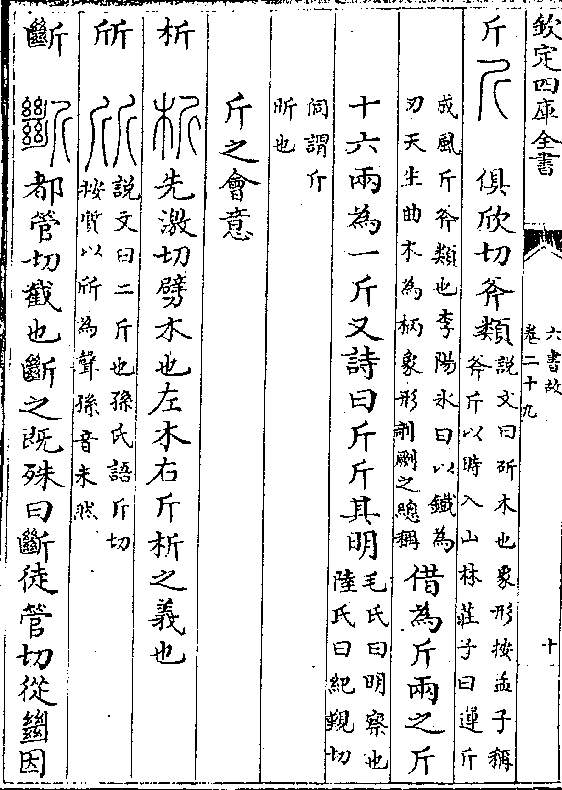 欽定四庫全書
六書故
卷二十九
十
斤 俱欣切斧類
說文曰斫木也象形按孟子稱
斧斤以時入山林莊子曰運斤
成風斤斧類也李陽氷曰以鐵為
刃天生曲木為柄象形劀劂之總稱
借為斤兩之斤
十六兩為一斤又詩曰斤斤其明
毛氏曰明察也
陸氏曰紀覲切
何謂斤
昕也
斤之會意
析 先激切劈木也左木右斤析之義也
斦
說文曰二斤也孫氏語斤切
按質以斦為聲孫音未然
斷 都管切截也斷之既殊曰斷徒管切從㡭因